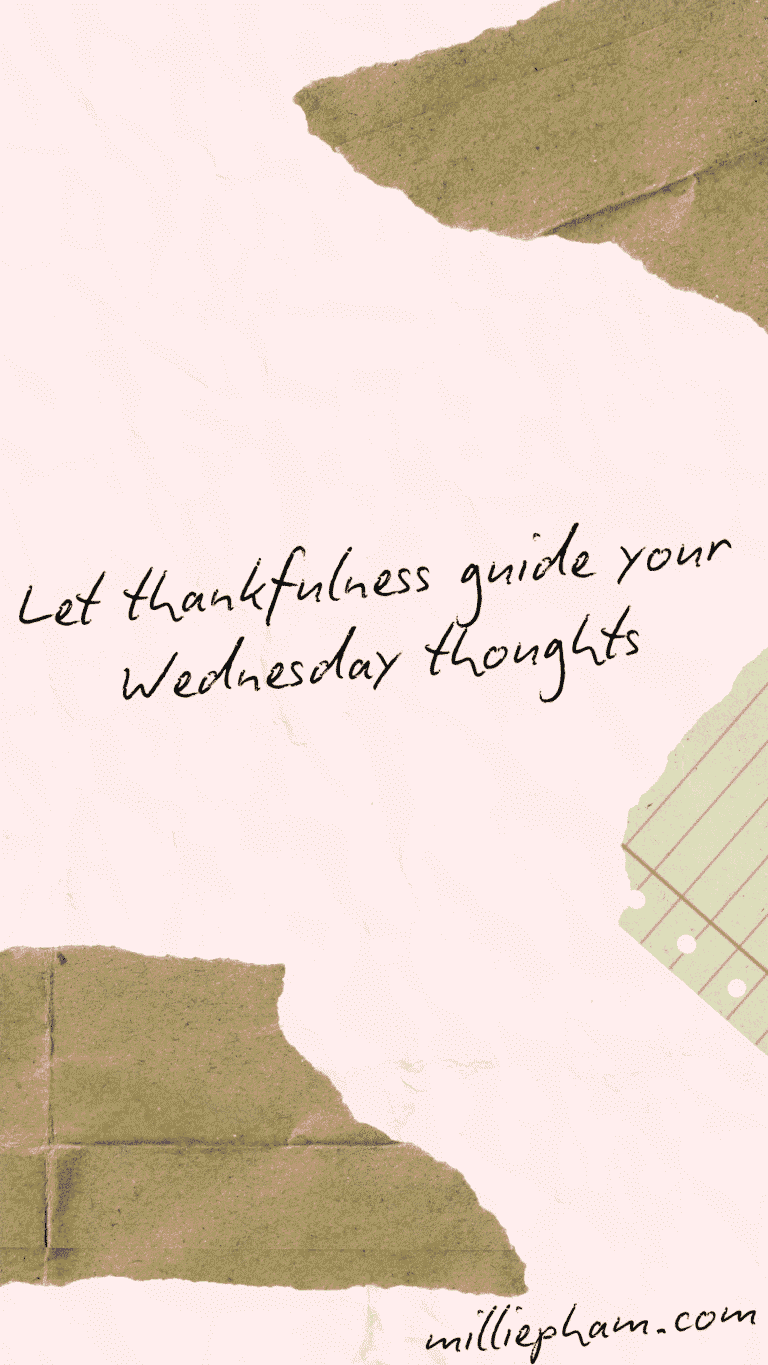 Let thankfulness guide your
Wednesday thoughts
milliepham.com